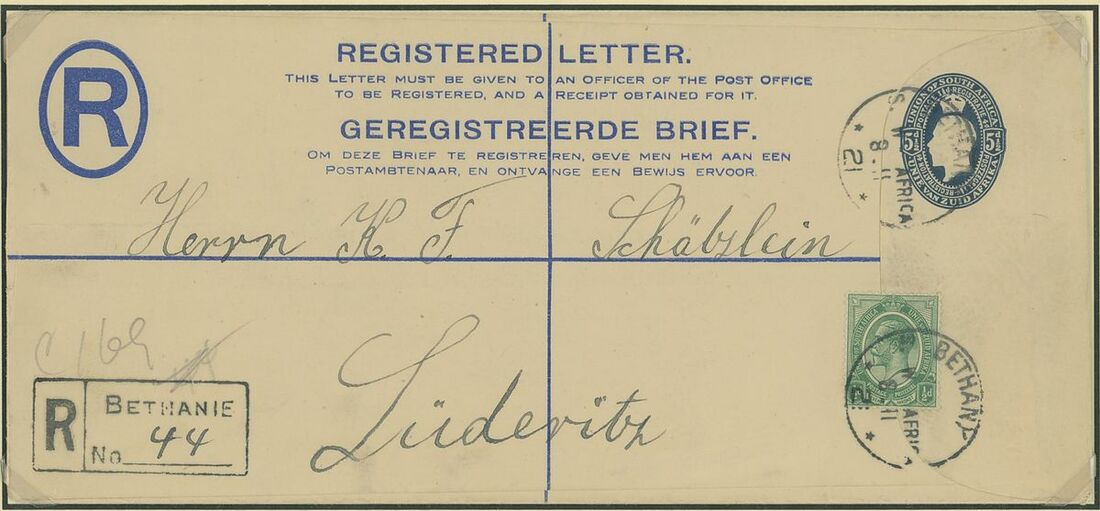 R
REGISTERED LETTER.
THIS LETTER MUST BE GIVEN TO AN OFFICER OF THE POST OFFICE
TO BE REGISTERED, AND A RECEIPT OBTAINED FOR IT.
GEREGISTREERDE BRIEF.
OM DEZE BRIEF TE REGISTREREN, GEVE MEN HEM AAN EEN
POSTAMBTENAAR, EN ONTVANGE EEN BEWIJS ERVOOR.
UNION OF SOUTH AFRICA
5½d 5½d
UNIE VAN ZUID AFRIKA
S. W. AFRICA
8 . 11
* 21 *
Herrn K. F. Schäbslein
Lüderitz
C 169
R BETHANIE
No 44
½d
BETHANI
AFRICA
8 11
21